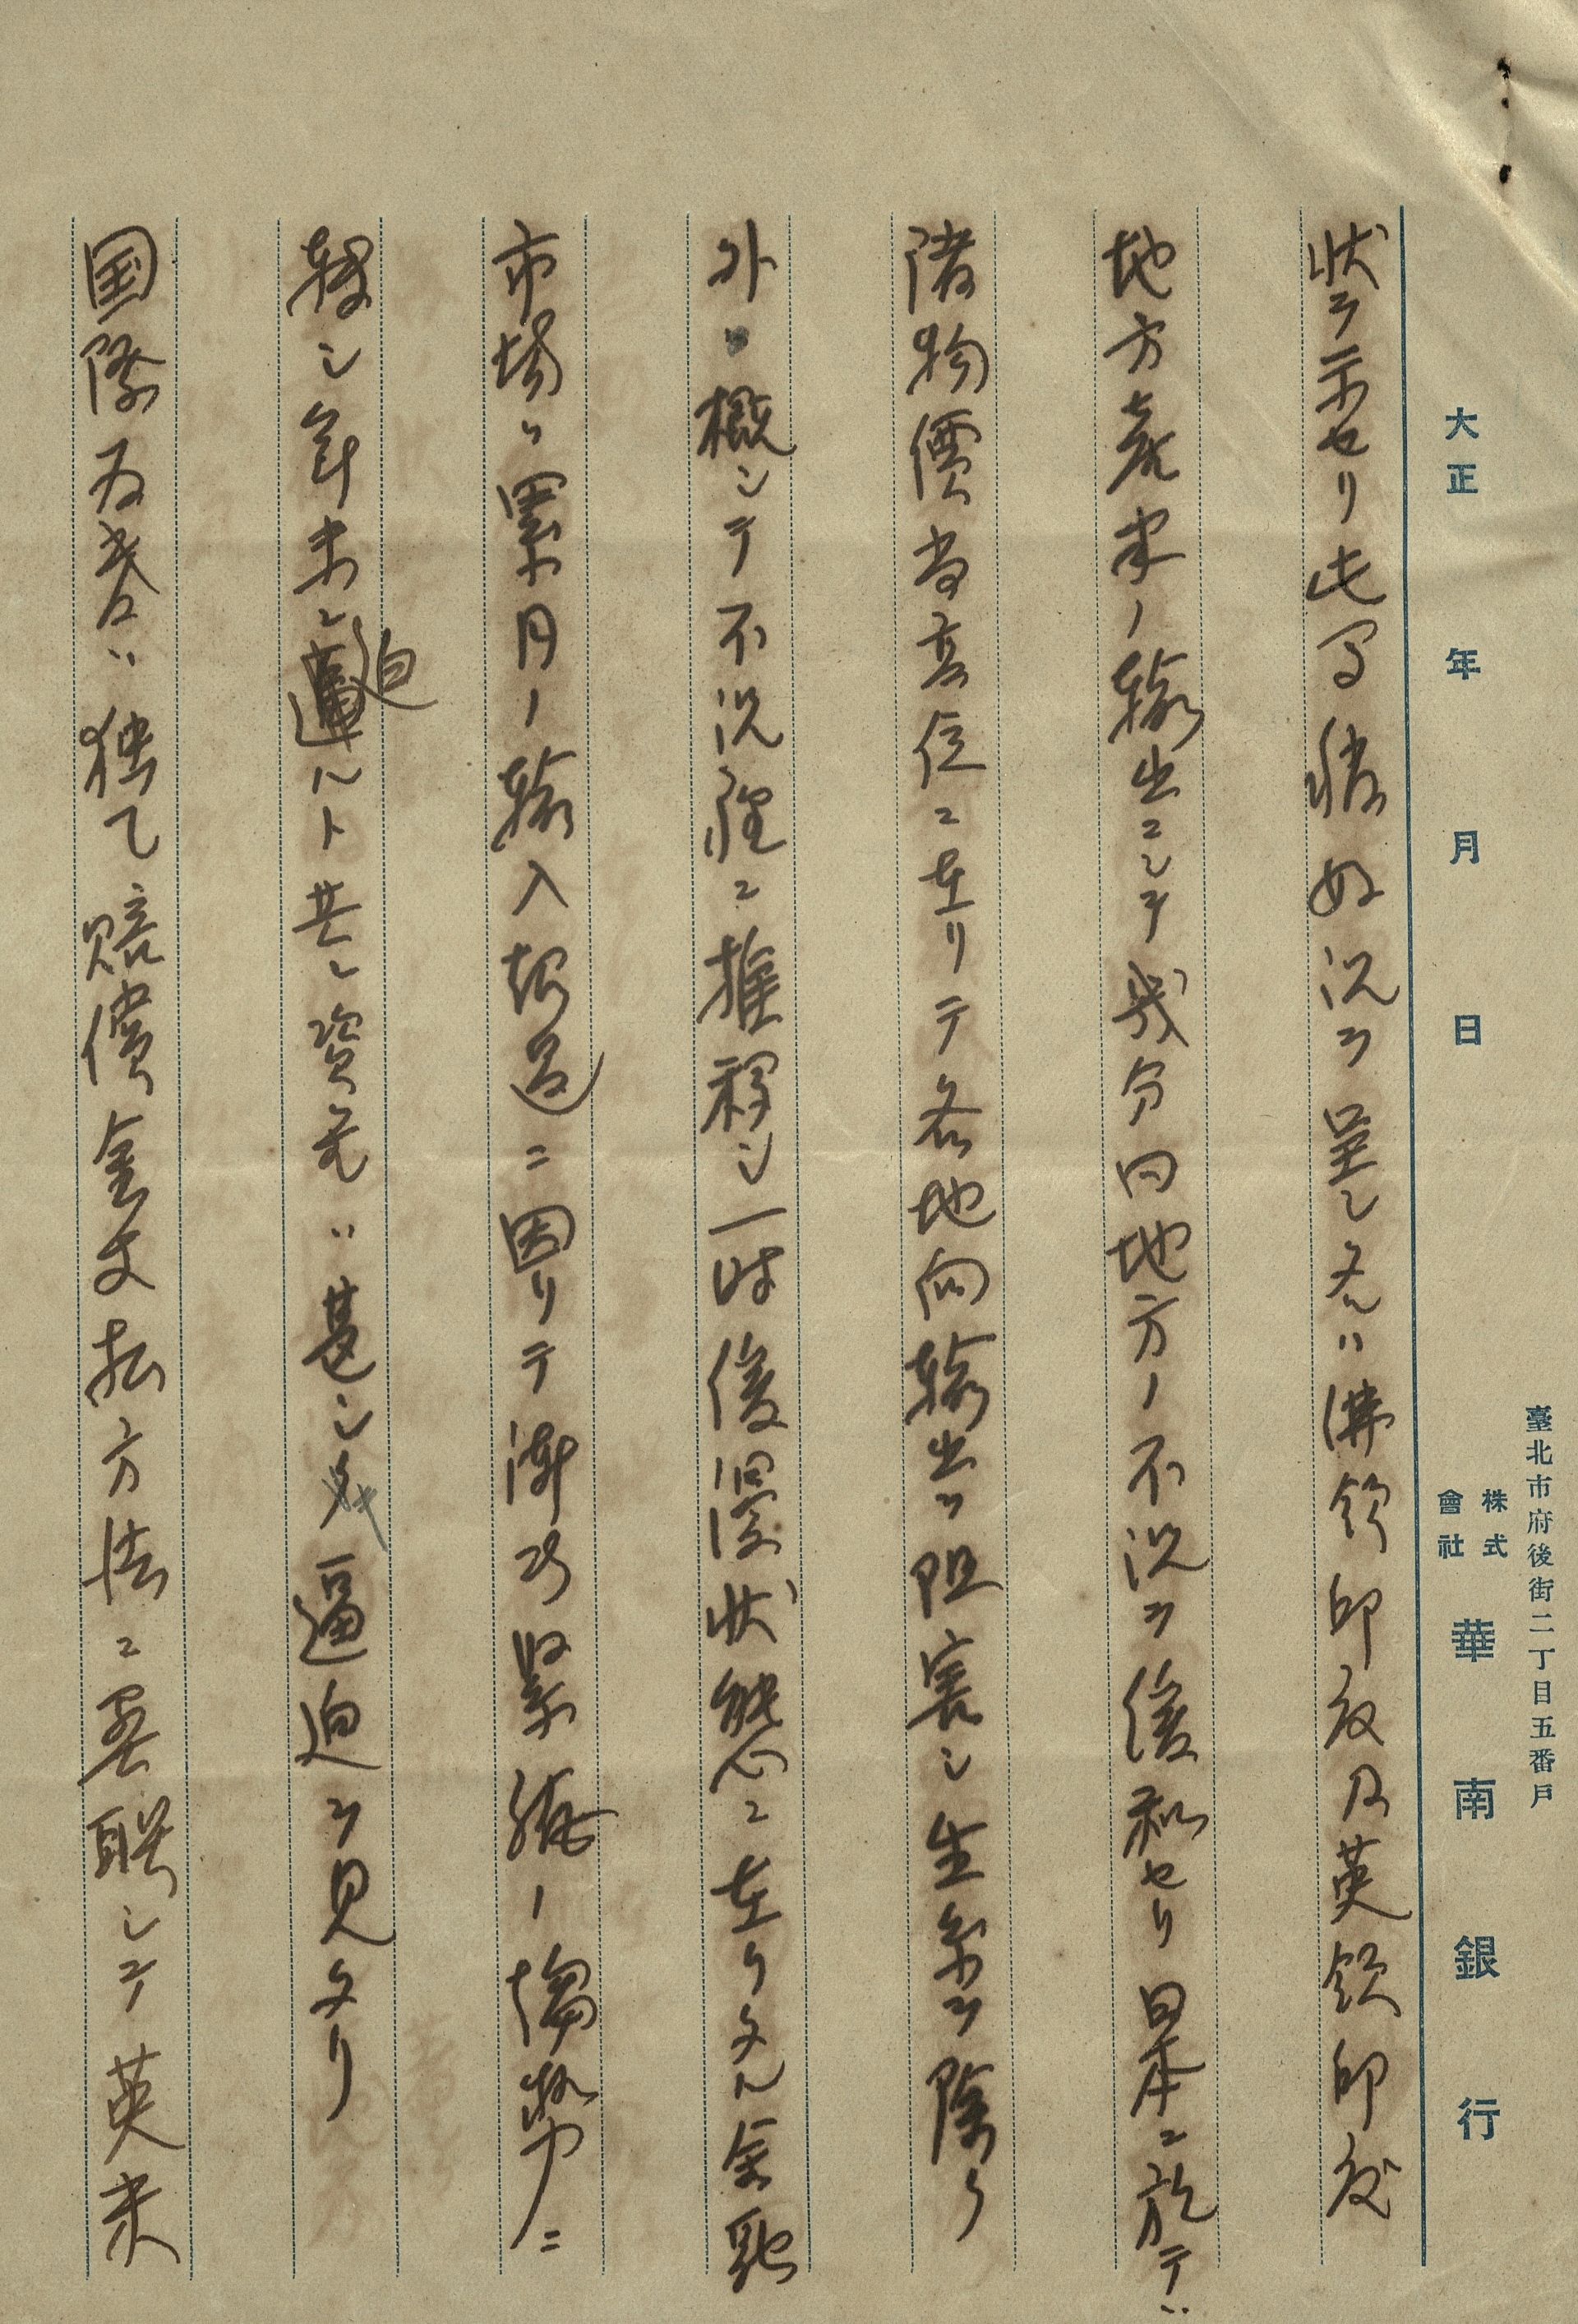 臺北市府後街二丁目五番戸
株式會社 華南銀行
大正 年 月 日
状ヲ示セリ此間稍好況ヲ呈シタルハ佛領印度及英領印度
地方産米ノ輸出ニシテ幾分同地方ノ不況ヲ緩和セリ日本ニ於テハ
諸物價尚高位ニ在リテ各地向輸出ヲ阻害シ生糸ヲ除ク
外概シテ不況裡ニ推移シ一時緩漫状態ニ在リタル金融
市場ハ累月ノ輸入超過ニ因リテ漸次緊縮ノ趨勢ニ
轉シ年末ニ迫ルト共ニ資金ハ甚シキ逼迫ヲ見タリ
国際為替ハ独乙賠償金支払方法ニ関聯シテ英米